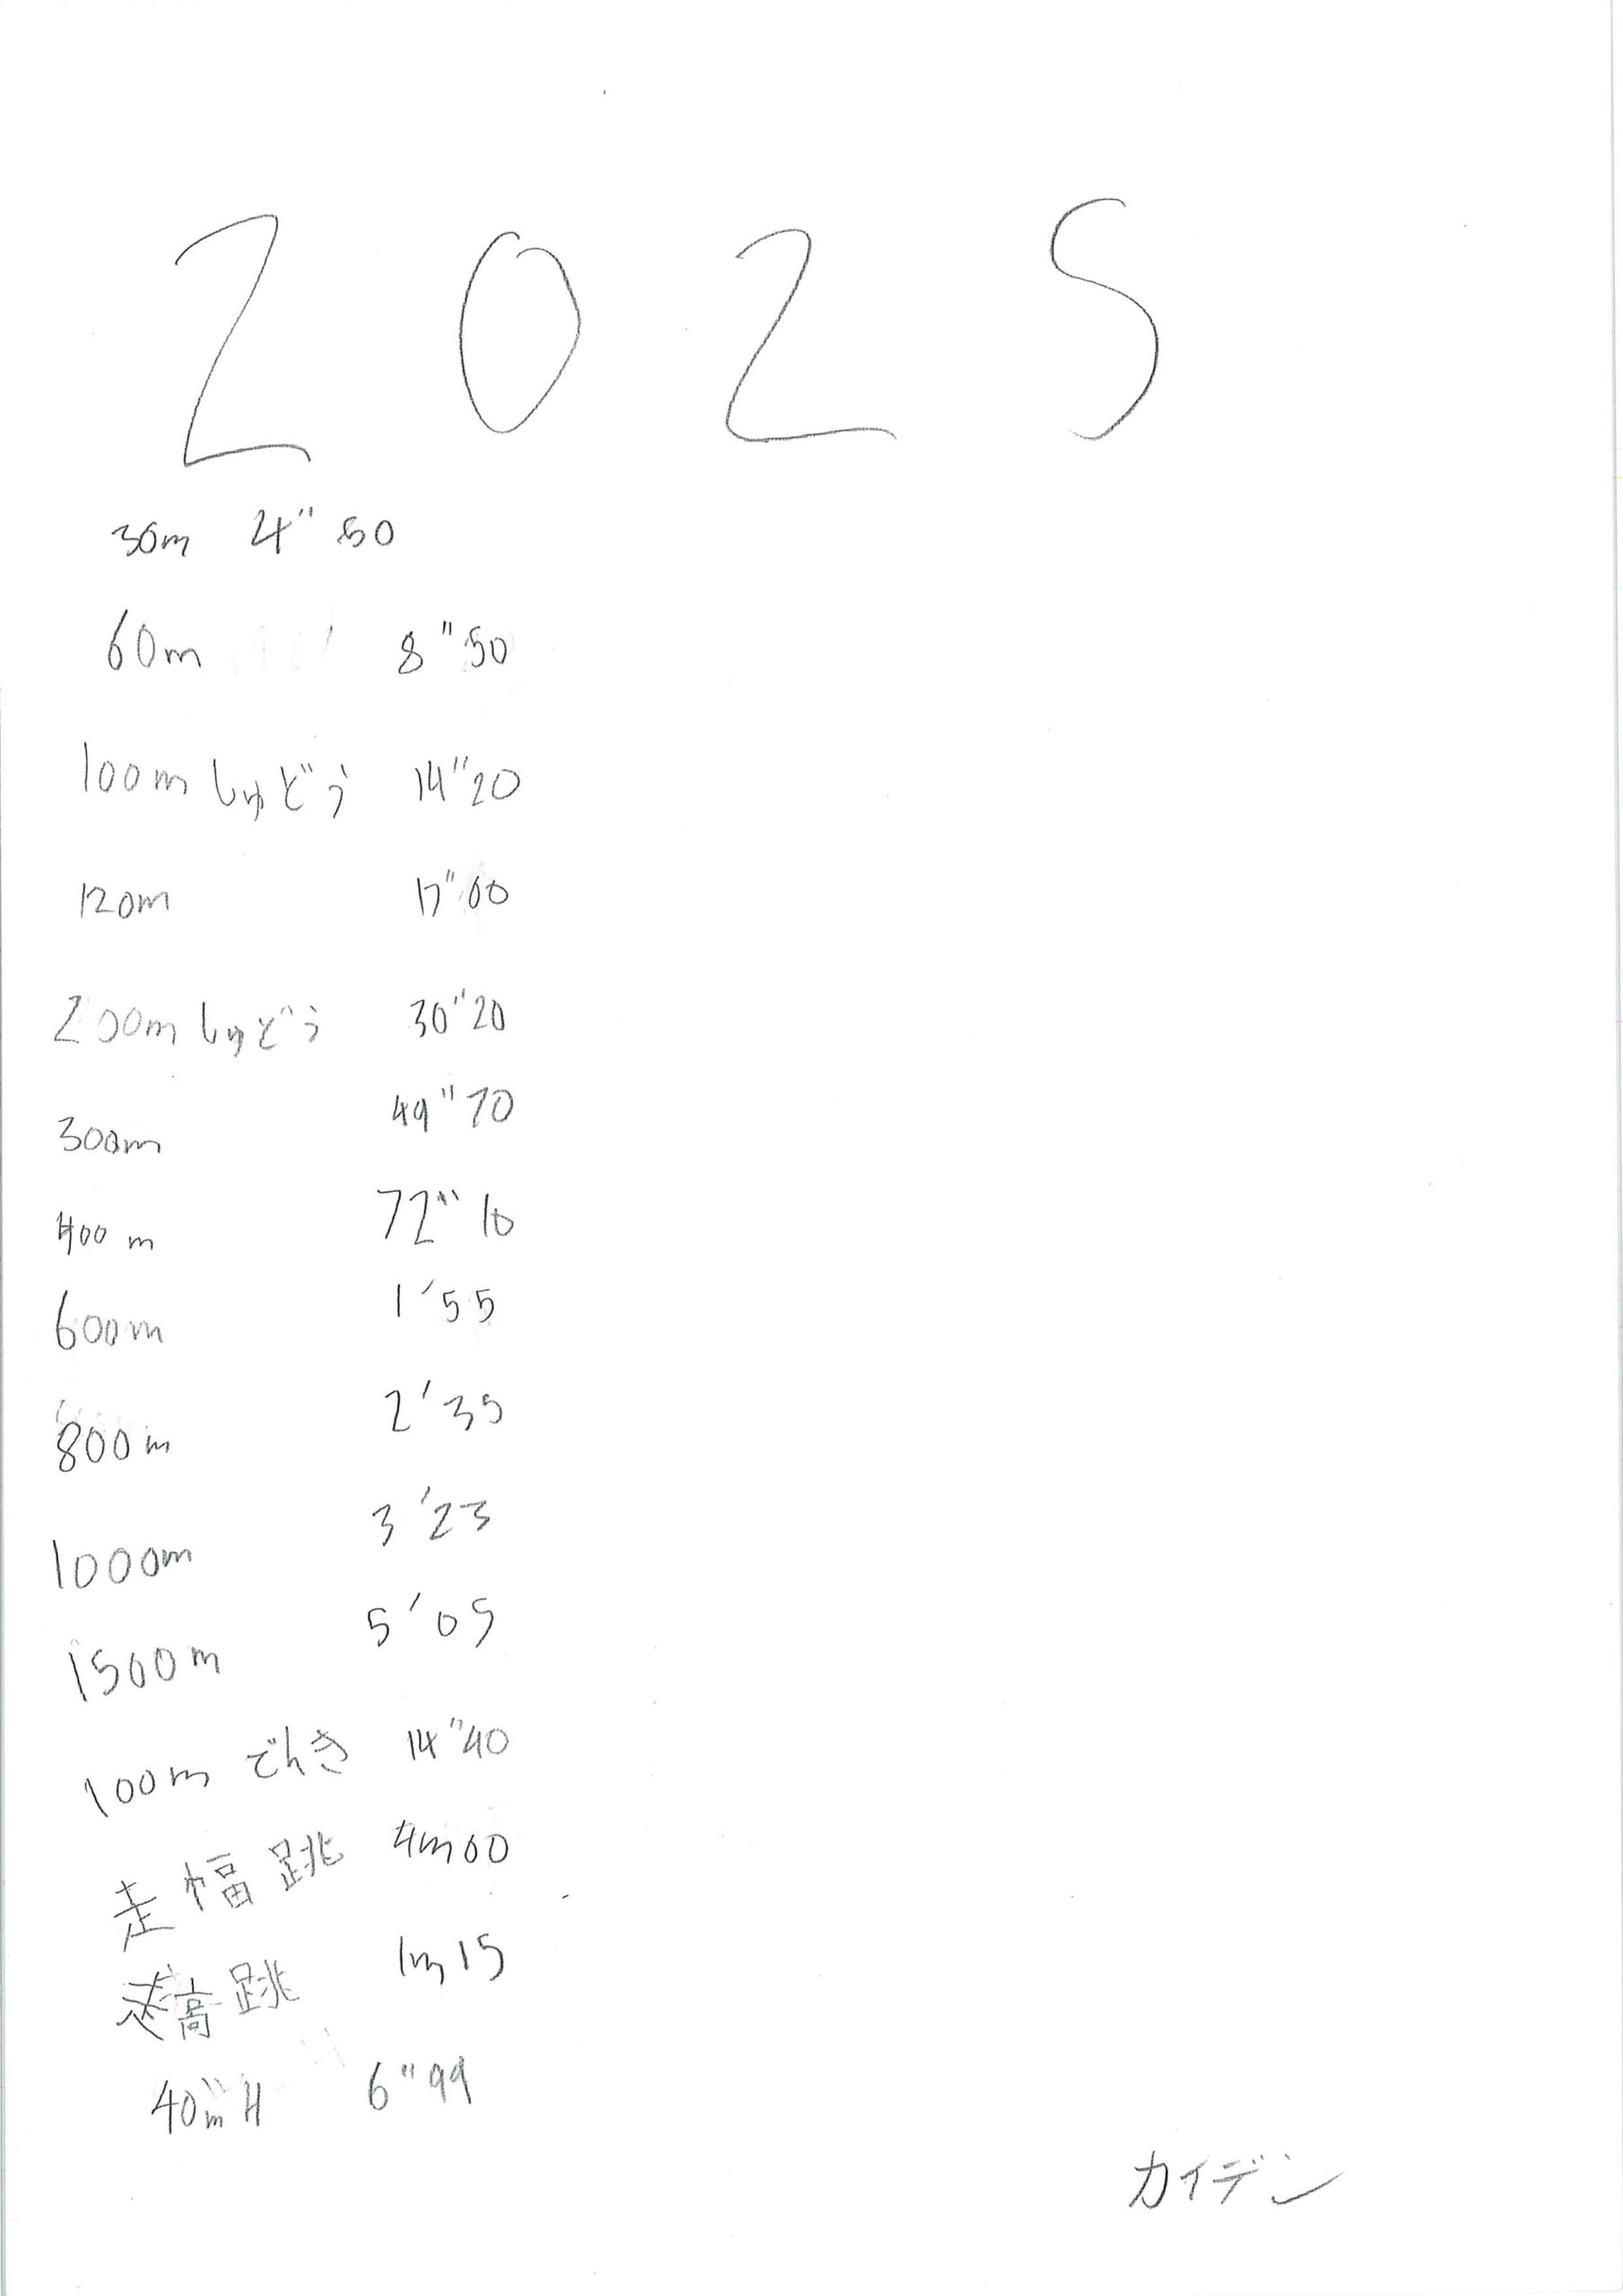 2025
30m 4"50
60m 8"50
100mしゅどう 14"20
120m 17"00
200mしゅどう 30"20
300m 49"70
400m 72"10
600m 1'55
800m 2'35
1000m 3'23
1500m 5'05
100mでんき 14"40
走幅跳 4m00
走高跳 1m15
40mH 6"99
カイデン